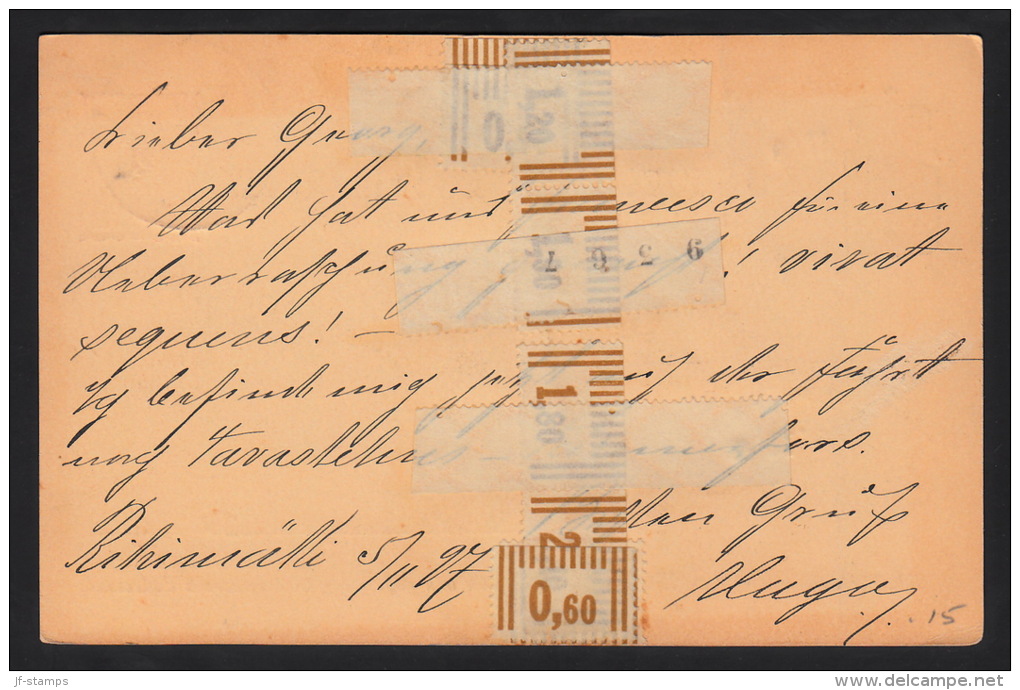 Lieber Georg,
Was hat uns für eine
Ueberraschung ! vivat
sequens! –
Ich befinde mich jetzt auf der Fahrt
nach Tavastehus –
Riihimäki 5/11 97 Gruß
Hugo
1,20
0
1,80
9 5 6 7
1,80
2
0,60
. 15
jf-stamps
www.delcampe.net